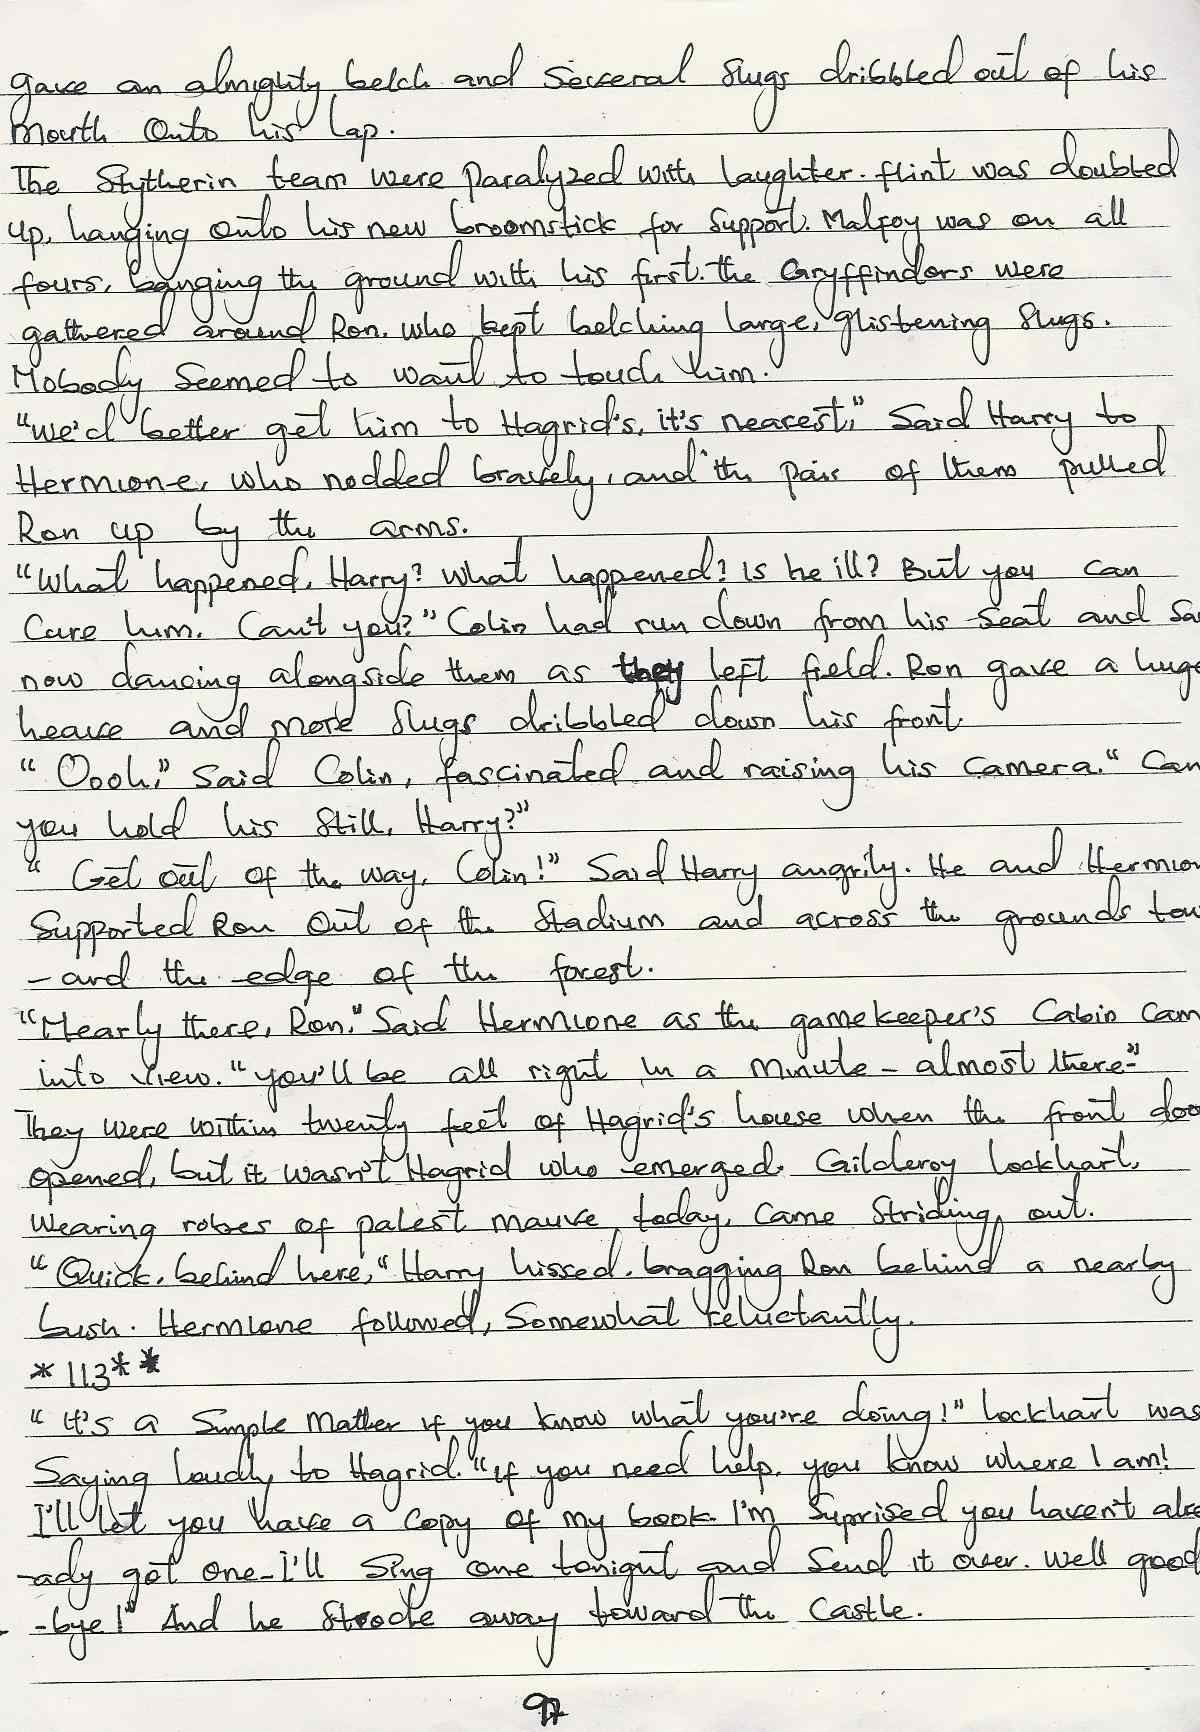 gave an almighty belch and several slugs dribbled out of his
mouth onto his lap.
The Slytherin team were paralyzed with laughter. flint was doubled
up, hanging onto his new broomstick for support. Malfoy was on all
fours, banging the ground with his first. the Gryffindors were
gathered around Ron. who kept belching large, glistening slugs.
Nobody seemed to want to touch him.
"We'd better get him to Hagrid's, it's nearest," Said Harry to
Hermione, who nodded bravely, and the pair of them pulled
Ron up by the arms.
"What happened, Harry? What happened? Is he ill? But you can
Cure him. Can't you?" Colin had run down from his seat and sa
now dancing alongside them as they left field. Ron gave a huge
heave and more slugs dribbled down his front
"Oooh," Said Colin, fascinated and raising his camera. "Can
you hold his still, Harry?"
"Get out of the way, Colin!" Said Harry angrily. He and Hermion
Supported Ron out of the Stadium and across the grounds tow
-ard the edge of the forest.
"Nearly there, Ron." Said Hermione as the gamekeeper's Cabin cam
into view. "you'll be all right in a minute - almost there-"
They were within twenty feet of Hagrid's house when the front doo
opened, but it wasn't Hagrid who emerged. Gilderoy lockhart,
wearing robes of palest mauve today, came striding out.
"Quick, behind here," Harry hissed, bragging Ron behind a nearby
bush. Hermione followed, Somewhat reluctantly.
*113**
"It's a Simple Matter if you know what you're doing!" lockhart was
Saying loudly to Hagrid. "if you need help, you know where I am!
I'll let you have a copy of my book. I'm Suprised you haven't alre
-ady got one-I'll Sing one tonight and Send it over. Well good
-bye!" And he Strode away toward the Castle.
97